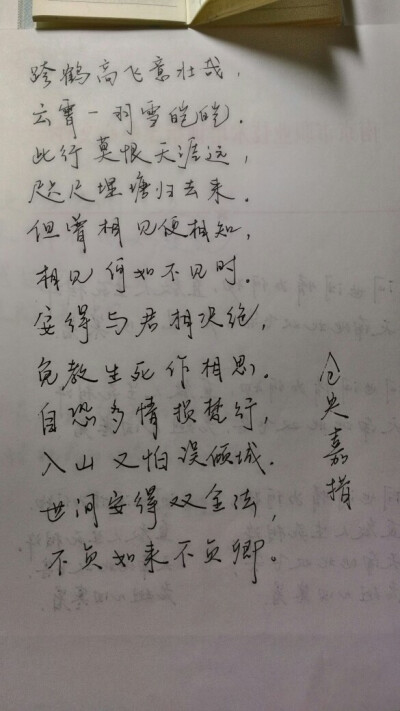 跨鹤高飞意壮哉，
云霄一羽雪皑皑．
此行莫恨天涯远，
咫尺理塘归去来．
但曾相见便相知，
相见何如不见时．
安得与君相决绝，
免教生死作相思．
自恐多情损梵行，
入山又怕误倾城．
世间安得双全法，
不负如来不负卿。
仓央嘉措